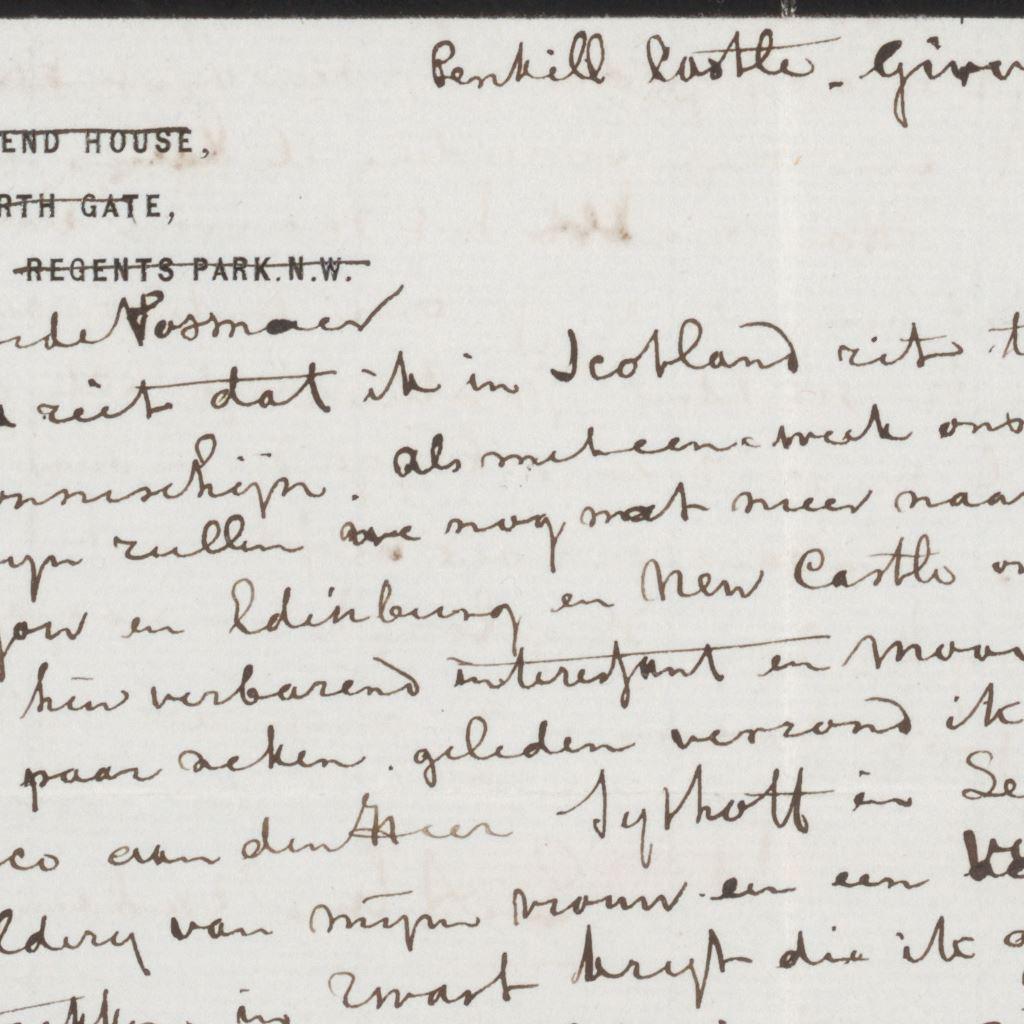 Penkill Castle - Girv
END HOUSE,
RTH GATE,
REGENTS PARK. N.W.
rde Vosmaer
ziet dat ik in Scotland zit t
onneschijn. als met een week ons
ijn zullen we nog met meer naar
gow en Edinburg en New Castle
hier verbazend interessant en mooi
paar weken. geleden verzond ik
co aan den Heer Sythoff in Le
ldery van mijn vrouw en een
in zwart kryt die ik